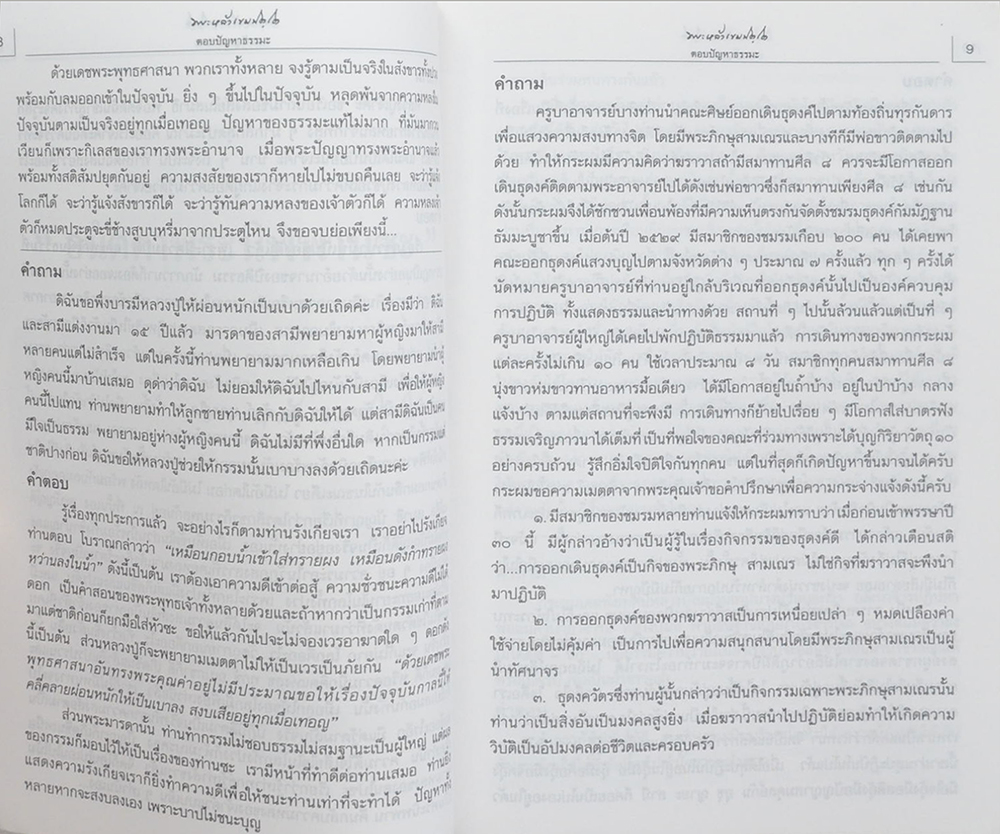 8
พระหล้าเขมปตฺโต
ตอบปัญหาธรรมะ
ด้วยเดชพระพุทธศาสนา พวกเราทั้งหลาย จงรู้ตามเป็นจริงในสังขารทั้งปวง
พร้อมกับลมออกเข้าในปัจจุบัน ยิ่ง ๆ ขึ้นไปในปัจจุบัน หลุดพ้นจากความหลงใน
ปัจจุบันตามเป็นจริงอยู่ทุกเมื่อเทอญ ปัญหาของธรรมะแท้ไม่มาก ที่มันมากวน
เวียนก็เพราะกิเลสของเราทรงพระอำนาจ เมื่อพระปัญญาทรงพระอำนาจแล้ว
พร้อมทั้งสติสัมปยุตกันอยู่ ความสงสัยของเราก็หายไปไม่ขบถคืนเลย จะว่ารู้แจ้ง
โลกก็ได้ จะว่ารู้แจ้งสังขารก็ได้ จะว่ารู้ทันความหลงของเจ้าตัวก็ได้ ความหลงเจ้า
ตัวก็หมดประตูจะขี่ช้างสูบบุหรี่มาจากประตูไหน จึงขอจบย่อเพียงนี้...
คำถาม
ดิฉันขอพึ่งบารมีหลวงปู่ให้ผ่อนหนักเป็นเบาด้วยเถิดค่ะ เรื่องมีว่า ดิฉัน
และสามีแต่งงานมา ๑๕ ปีแล้ว มารดาของสามีพยายามหาผู้หญิงมาให้สามี
หลายคนแต่ไม่สำเร็จ แต่ในครั้งนี้ท่านพยายามมากเหลือเกิน โดยพยายามนำผู้
หญิงคนนี้มาบ้านเสมอ ดุด่าว่าดิฉัน ไม่ยอมให้ดิฉันไปไหนกับสามี เพื่อให้ผู้หญิง
คนนี้ไปแทน ท่านพยายามทำให้ลูกชายท่านเลิกกับดิฉันให้ได้ แต่สามีดิฉันเป็นคน
มีใจเป็นธรรม พยายามอยู่ห่างผู้หญิงคนนี้ ดิฉันไม่มีที่พึ่งอื่นใด หากเป็นกรรมแต่
ชาติปางก่อน ดิฉันขอให้หลวงปู่ช่วยให้กรรมนั้นเบาบางลงด้วยเถิดนะคะ
คำตอบ
รู้เรื่องทุกประการแล้ว จะอย่างไรก็ตามท่านรังเกียจเรา เราอย่าไปรังเกียจ
ท่านตอบ โบราณกล่าวว่า “เหมือนกอบน้ำเข้าใส่ทรายผง เหมือนดังกำทรายผง
หว่านลงในน้ำ” ดังนี้เป็นต้น เราต้องเอาความดีเข้าต่อสู้ ความชั่วชนะความดีไม่ได้
ดอก เป็นคำสอนของพระพุทธเจ้าทั้งหลายด้วยและถ้าหากว่าเป็นกรรมเก่าที่ตาม
มาแต่ชาติก่อนก็ยกมือใส่หัวซะ ขอให้แล้วกันไปจะไม่จองเวรอาฆาตใด ๆ ดอกดัง
นี้เป็นต้น ส่วนหลวงปู่ก็จะพยายามเมตตาไม่ให้เป็นเวรเป็นภัยกัน “ด้วยเดชพระ
พุทธศาสนาอันทรงพระคุณค่าอยู่ไม่มีประมาณขอให้เรื่องปัจจุบันกาลนี้ให้
คลี่คลายผ่อนหนักให้เป็นเบาลง สงบเสียอยู่ทุกเมื่อเทอญ”
ส่วนพระมารดานั้น ท่านทำกรรมไม่ชอบธรรมไม่สมฐานะเป็นผู้ใหญ่ แต่ผล
ของกรรมก็มอบไว้ให้เป็นเรื่องของท่านซะ เรามีหน้าที่ทำดีต่อท่านเสมอ ท่านยิ่ง
แสดงความรังเกียจเราก็ยิ่งทำความดีเพื่อให้ชนะท่านเท่าที่จะทำได้ ปัญหาทั้ง
หลายหากจะสงบลงเอง เพราะบาปไม่ชนะบุญ
พระหล้าเขมปตฺโต
ตอบปัญหาธรรมะ
9
คำถาม
ครูบาอาจารย์บางท่านนำคณะศิษย์ออกเดินธุดงค์ไปตามท้องถิ่นทุรกันดาร
เพื่อแสวงความสงบทางจิต โดยมีพระภิกษุสามเณรและบางทีก็มีพ่อขาวติดตามไป
ด้วย ทำให้กระผมมีความคิดว่าฆราวาสถ้ามีสมาทานศีล ๘ ควรจะมีโอกาสออก
เดินธุดงค์ติดตามพระอาจารย์ไปได้ดังเช่นพ่อขาวซึ่งก็สมาทานเพียงศีล ๘ เช่นกัน
ดังนั้นกระผมจึงได้ชักชวนเพื่อนพ้องที่มีความเห็นตรงกันจัดตั้งชมรมธุดงค์กัมมัฏฐาน
ธัมมะบูชาขึ้น เมื่อต้นปี ๒๕๒๙ มีสมาชิกของชมรมเกือบ ๒๐๐ คน ได้เคยพา
คณะออกธุดงค์แสวงบุญไปตามจังหวัดต่าง ๆ ประมาณ ๗ ครั้งแล้ว ทุก ๆ ครั้งได้
นัดหมายครูบาอาจารย์ที่ท่านอยู่ใกล้บริเวณที่ออกธุดงค์นั้นไปเป็นองค์ควบคุม
การปฏิบัติ ทั้งแสดงธรรมและนำทางด้วย สถานที่ ๆ ไปนั้นล้วนแล้วแต่เป็นที่ ๆ
ครูบาอาจารย์ผู้ใหญ่ได้เคยไปพักปฏิบัติธรรมมาแล้ว การเดินทางของพวกกระผม
แต่ละครั้งไม่เกิน ๑๐ คน ใช้เวลาประมาณ ๘ วัน สมาชิกทุกคนสมาทานศีล ๘
นุ่งขาวห่มขาวทานอาหารมื้อเดียว ได้มีโอกาสอยู่ในถ้ำบ้าง อยู่ในป่าบ้าง กลาง
แจ้งบ้าง ตามแต่สถานที่จะพึงมี การเดินทางก็ย้ายไปเรื่อย ๆ มีโอกาสใส่บาตรฟัง
ธรรมเจริญภาวนาได้เต็มที่ เป็นที่พอใจของคณะที่ร่วมทางเพราะได้บุญกิริยาวัตถุ ๑๐
อย่างครบถ้วน รู้สึกอิ่มใจปีติใจกันทุกคน แต่ในที่สุดก็เกิดปัญหาขึ้นมาจนได้ครับ
กระผมขอความเมตตาจากพระคุณเจ้าขอคำปรึกษาเพื่อความกระจ่างแจ้งดังนี้ครับ
๑. มีสมาชิกของชมรมหลายท่านแจ้งให้กระผมทราบว่า เมื่อก่อนเข้าพรรษาปี
๓๐ นี้ มีผู้กล่าวอ้างว่าเป็นผู้รู้ในเรื่องกิจกรรมของธุดงค์ดี ได้กล่าวเตือนสติ
ว่า...การออกเดินธุดงค์เป็นกิจของพระภิกษุ สามเณร ไม่ใช่กิจที่ฆราวาสจะพึงนำ
มาปฏิบัติ
๒. การออกธุดงค์ของพวกฆราวาสเป็นการเหนื่อยเปล่า ๆ หมดเปลืองค่า
ใช้จ่ายโดยไม่คุ้มค่า เป็นการไปเพื่อความสนุกสนานโดยมีพระภิกษุสามเณรเป็นผู้
นำทัศนาจร
๓. ธุดงควัตรซึ่งท่านผู้นั้นกล่าวว่าเป็นกิจกรรมเฉพาะพระภิกษุสามเณรนั้น
ท่านว่าเป็นสิ่งอันเป็นมงคลสูงยิ่ง เมื่อฆราวาสนำไปปฏิบัติย่อมทำให้เกิดความ
วิบัติเป็นอัปมงคลต่อชีวิตและครอบครัว